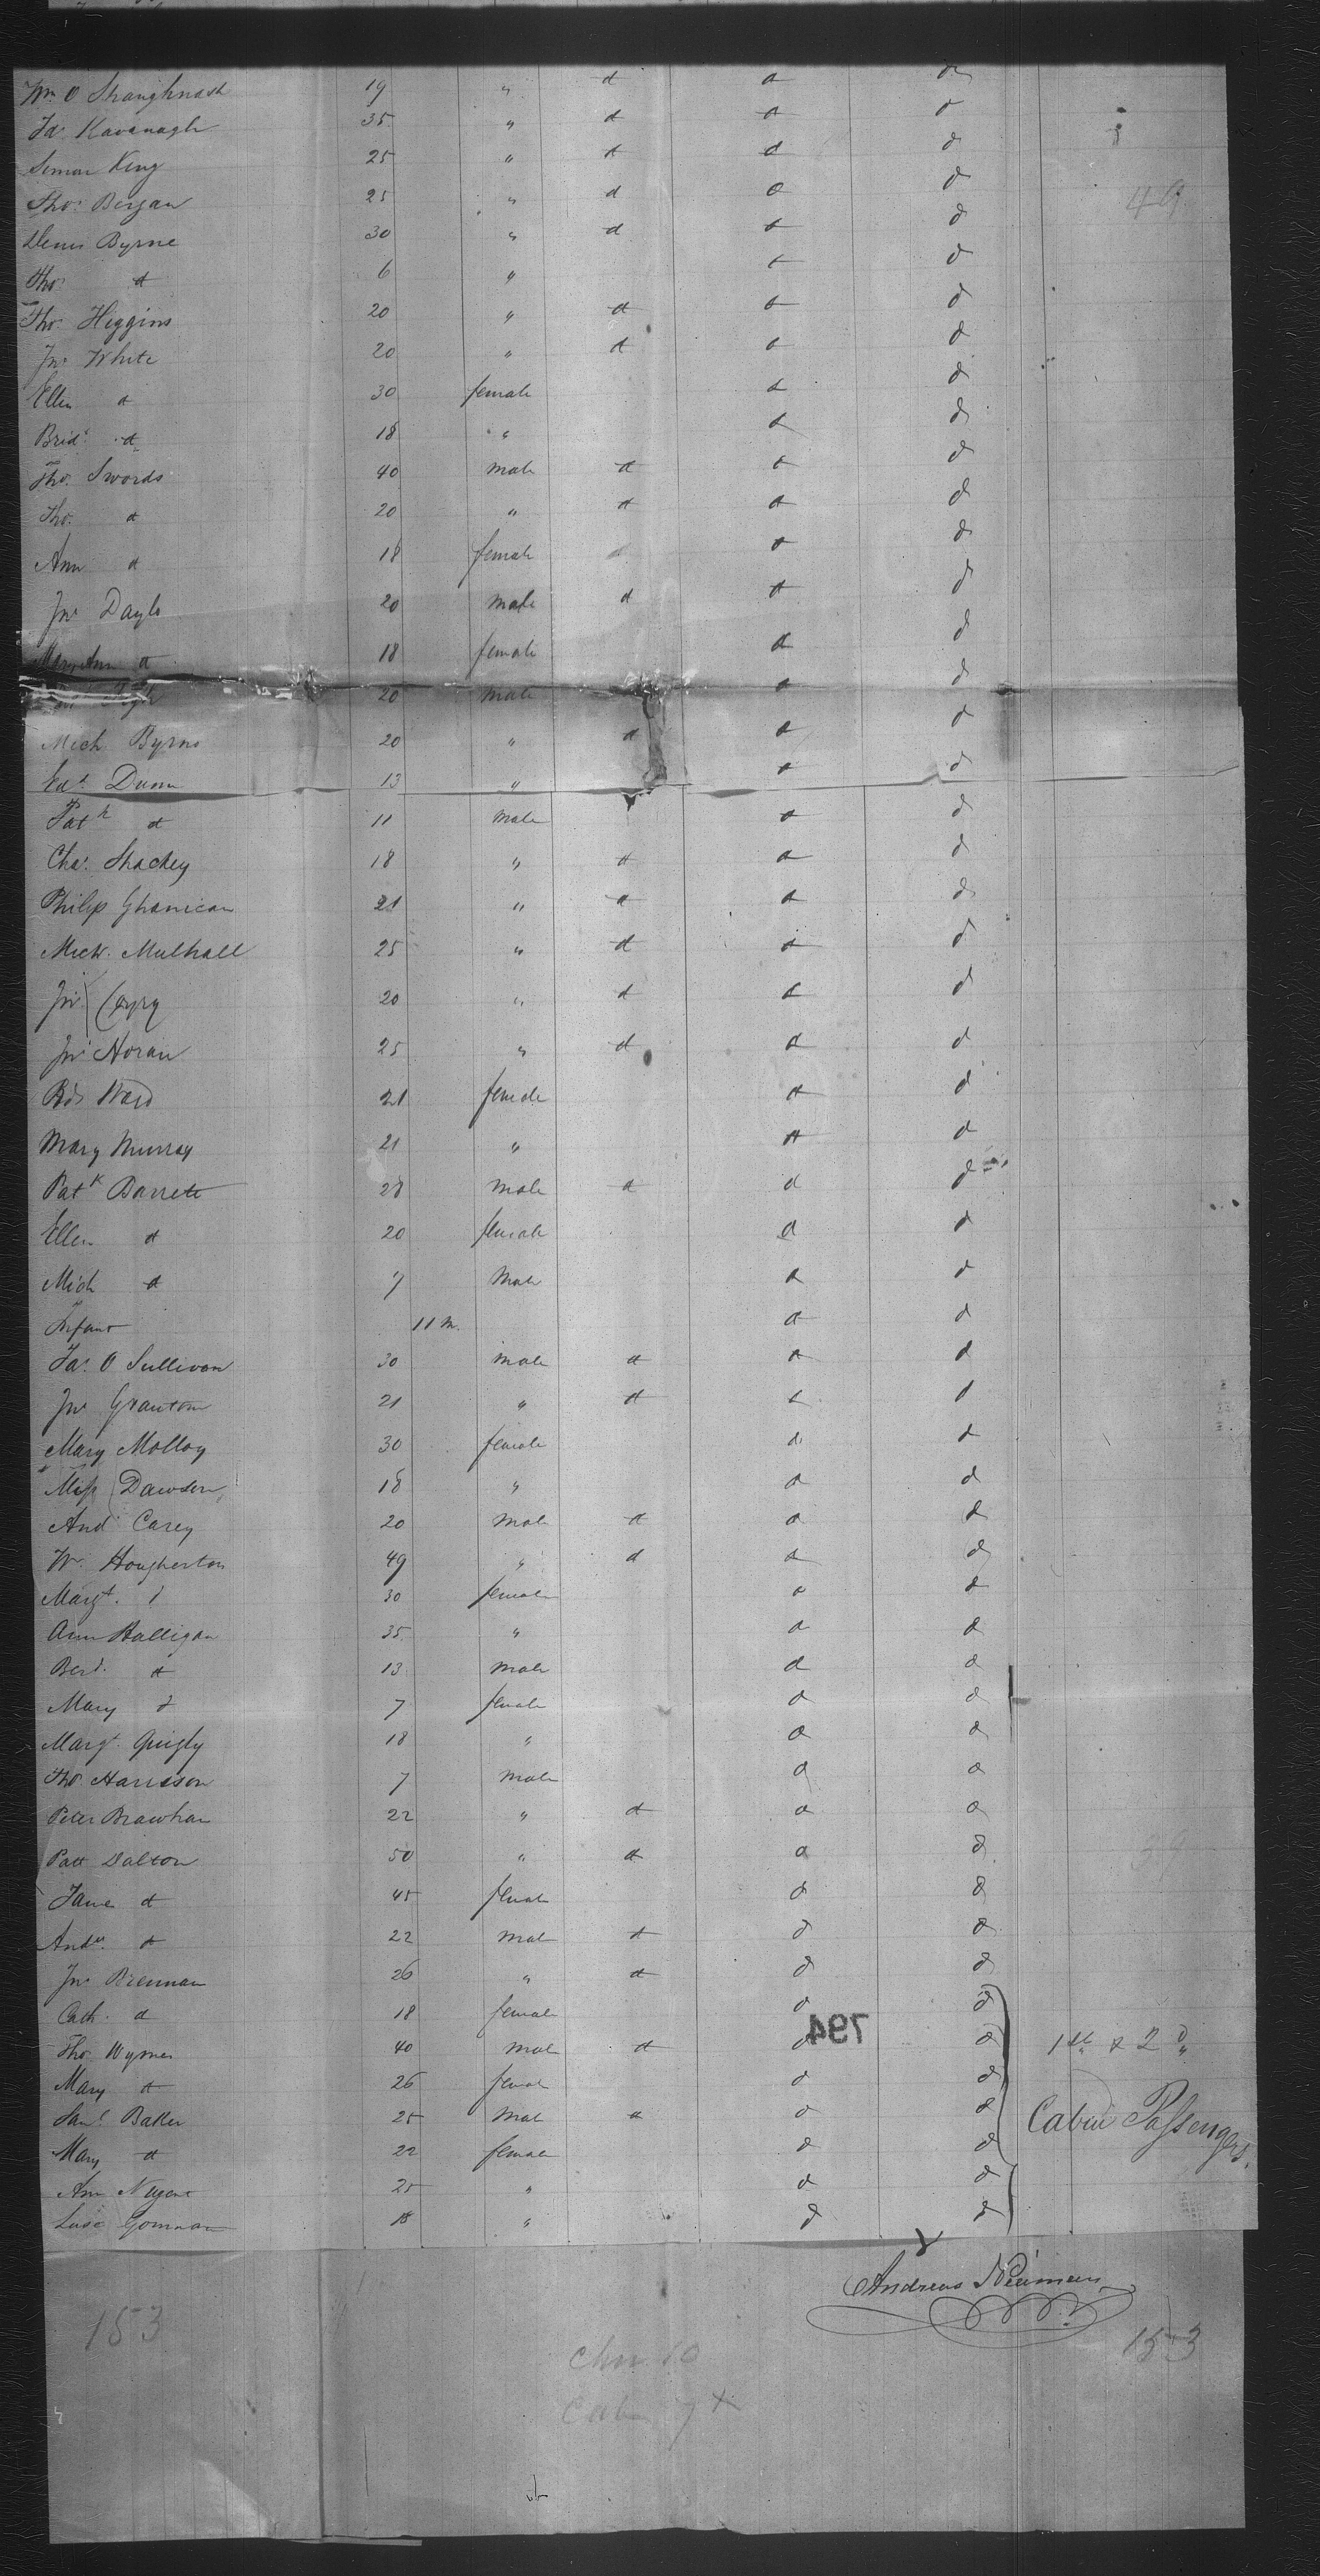 Wm O Shaughnash 19 " d d d
Ja's Kavanagh 35 " d d d
Simon King 25 " d d d
Tho's Bergan 25 " d d d
Denis Byrne 30 " d d d
Tho's d 6 " d d
Tho's Higgins 20 " d d d
Jno White 20 " d d d
Ellen d 30 female d d
Brid't d 18 " d d
Tho's Swords 40 male d d d
Tho's d 20 " d d d
Ann d 18 female d d
Jno Dayls 20 male d d d
Mary Ann d 18 female d d
20 male d d
Mich Byrns 20 " d d d
Ed'd Dunn 13 " d d
Patk d 11 male d d
Cha's Shackey 18 " d d d
Philip Ghanican 21 " d d d
Mich. Mulhall 25 " d d d
Jno 20 " d d d
Jno Horan 25 " d d d
Bd's Ward 21 female d d
Mary Murray 21 " d d
Patk Barrett 28 male d d d
Ellen d 20 female d d
Mich d 7 Male d d
Infant 11 m. d d
Ja's O Sullivan 30 male d d d
Jno Grantom 21 " d d d
Mary Molloy 30 female d d
Miss Dawson 18 " d d
And'w Carey 20 male d d d
Wm Hougherton 49 " d d d
Margt. d 30 female d d
Ann Halligan 35 " d d
Berd. d 13 male d d
Mary d 7 female d d
Margt. Quigly 18 " d d
Tho's Harisson 7 male d d
Peter Brawhan 22 " d d d
Patt Dalton 50 " d d d
Jane d 45 female d d
Andw. d 22 male d d d
Jno Brennan 26 " d d d
Cath. d 18 female d d
Tho's Wymes 40 male d d d 1st & 2d
Mary d 26 female d d
Sam'l Baker 25 male d d d Cabin Passengers.
Mary d 22 female d d
Ann Nugent 25 " d d
Gomnan 18 " d d
794
Andreas Neumann
153
153
Chn 10
Cab 7